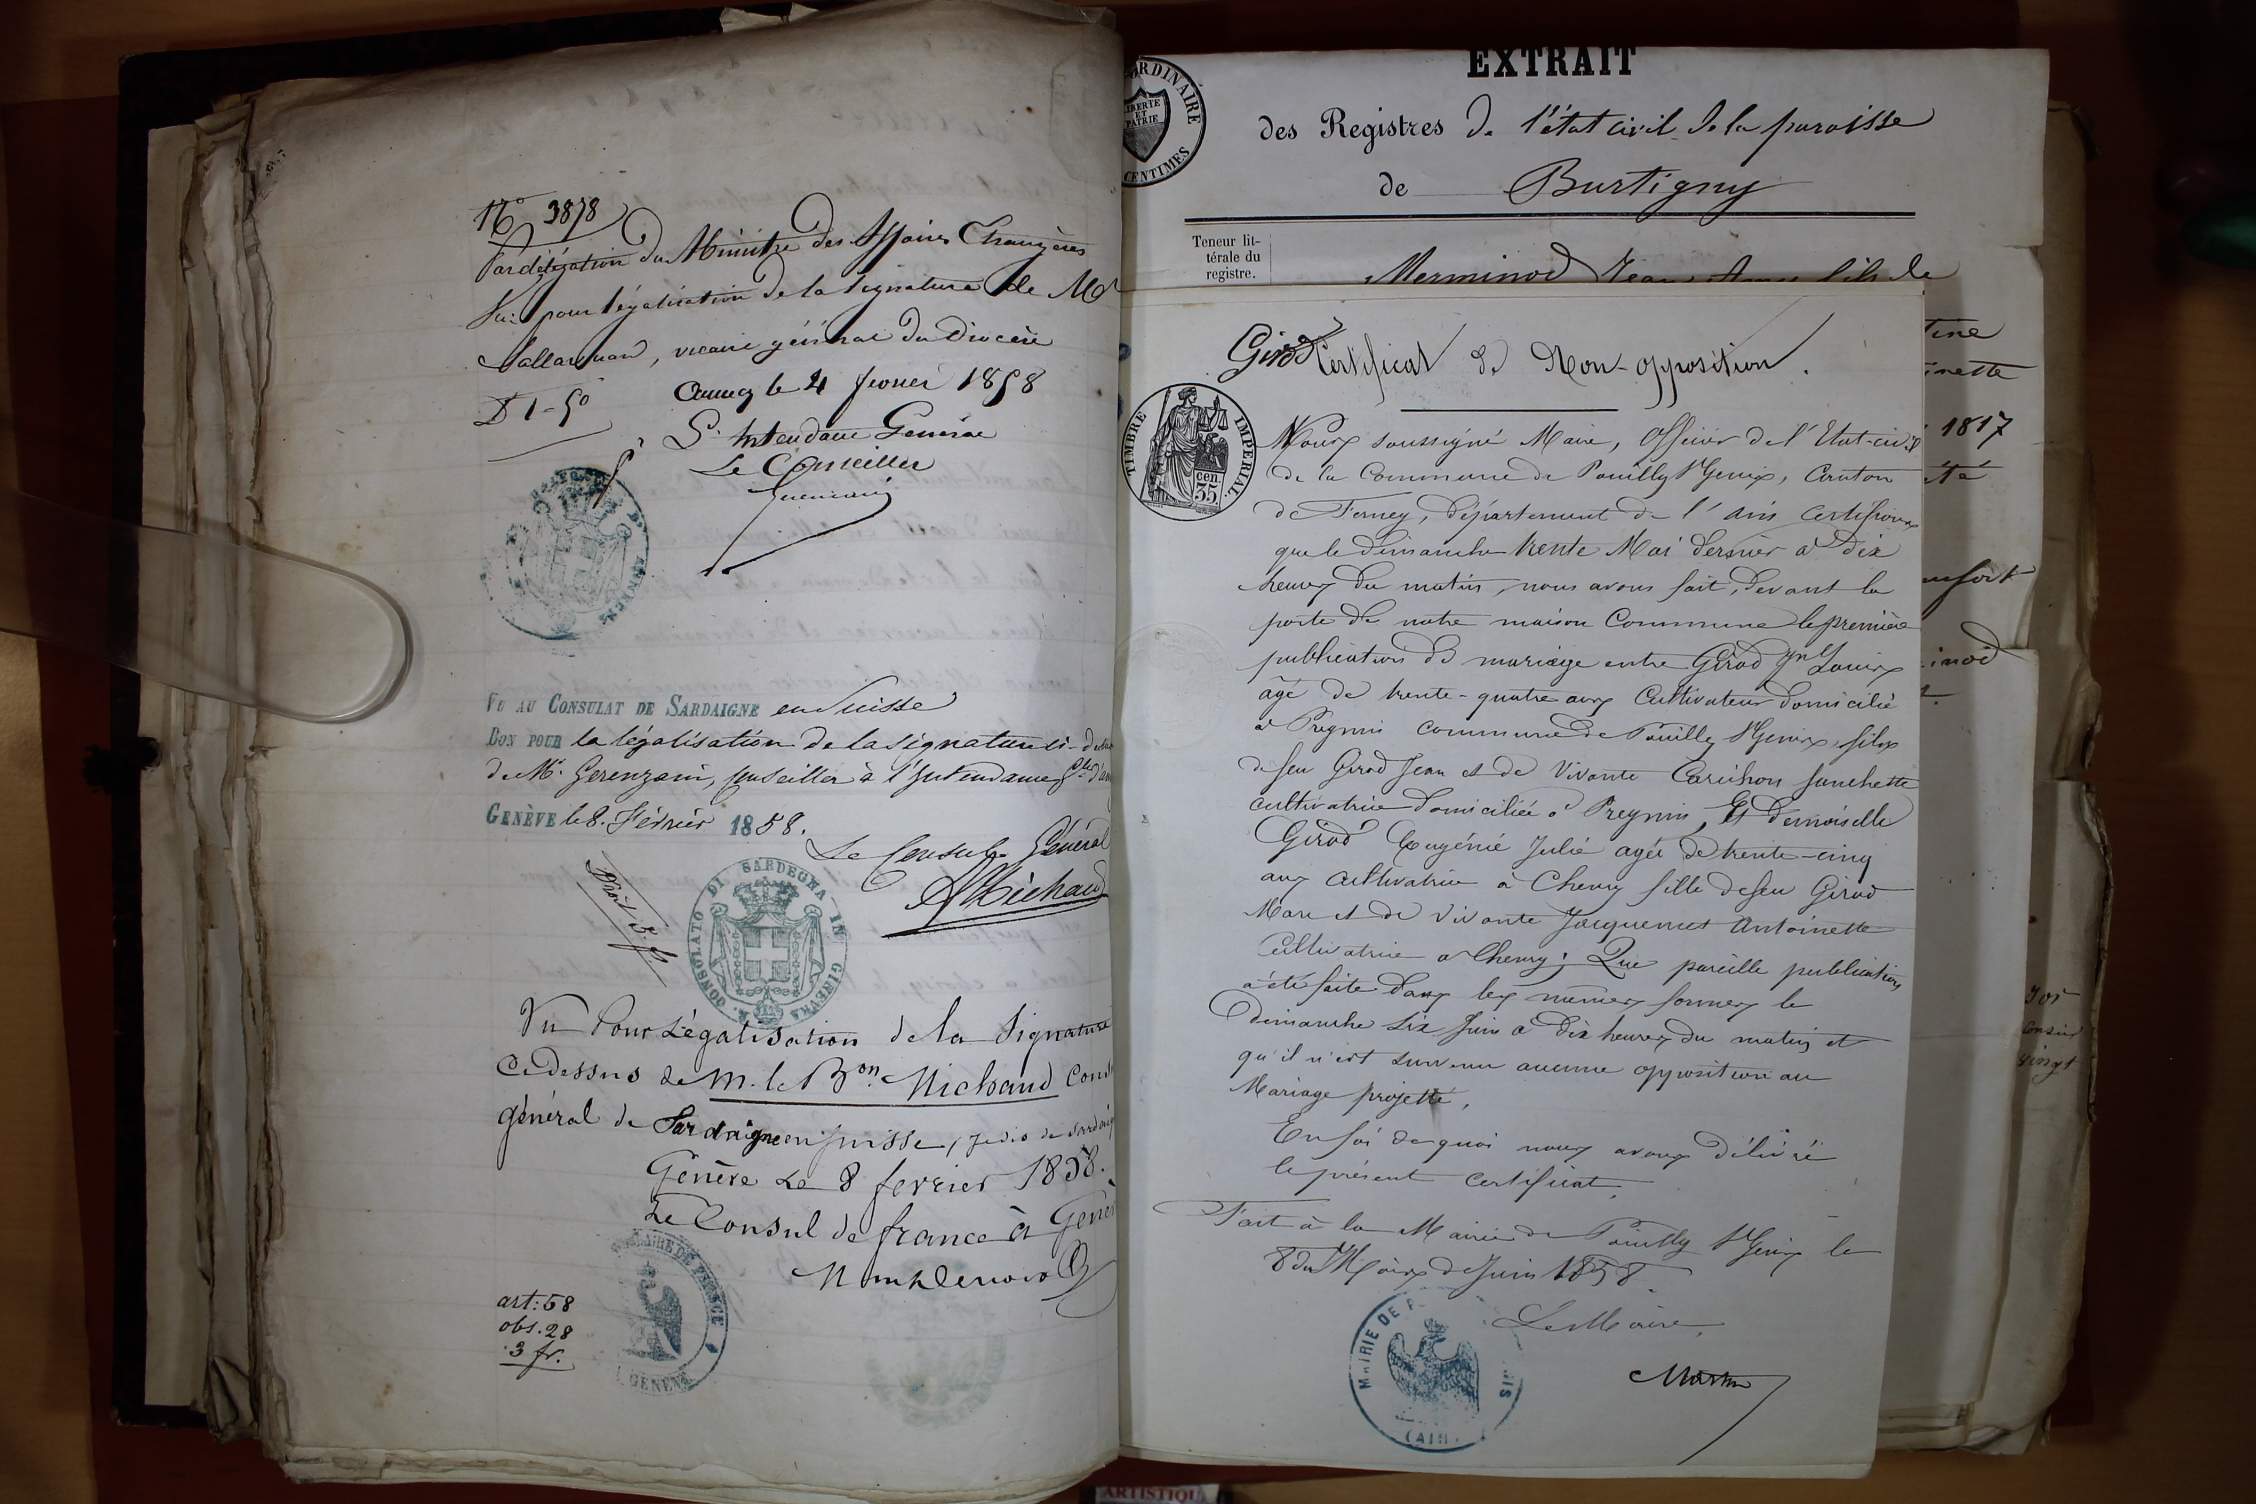 N° 3878
Par délégation du Ministre des Affaires Etrangères
Vu pour légalisation de la signature de Mr
vicaire général du Diocèse
Annecy le 4 fevrier 1858
D 1-50
L'Intendance Générale
Le Conseiller
VU AU CONSULAT DE SARDAIGNE en Suisse
BON POUR la légalisation de la signature ci-dessus
de Mr. Gerenzani, Conseiller à l'Intendance Gle d'
GENÈVE le 8. Février 1858.
Le Consul Général
AMichaud
Droit 3 f
CONSOLATO DI SARDEGNA IN GINEVRA
Vu Pour Légalisation de la Signature
Ci dessus de M. le Bon. Michaud Cons
général de Sardaigne en Suisse,
Genève Le 8 fevrier 1858.
Le Consul de france à Genè
DE FRANCE
GENÈVE
art: 58
obs. 28
3 fr.
EXTRAIT
ORDINAIRE
LIBERTE
ET
PATRIE
CENTIMES
des Registres de l'état civil de la paroisse
de Burtigny
Teneur lit-
térale du
registre.
Merminod Jean fils de
Girod
Certificat de Non-opposition.
TIMBRE IMPERIAL
cen.
35.
Nous soussigné Maire, Officier de l'Etat-civil
de la Commune de Pouilly St Genix, Canton
de Ferney, département de l'Ain certifions
que le Dimanche trente Mai dernier à dix
heures du matin, nous avons fait, devant la
porte de notre maison Commune le première
publication de mariage entre Girod Louis
âgé de trente-quatre ans Cultivateur domicilié
à Pregnin commune de Pouilly St Genix, fils
de feu Girod Jean et de Vivante Carichon fanchette
cultivatrice domiciliée à Pregnin, Et demoiselle
Girod Eugénie Julie agée de trente-cinq
ans cultivatrice à Chevry fille de feu Girod
Marc et de Vivante Jacquemet Antoinette
Cultivatrice a Chevry; Que pareille publication
a été faite dans les mêmes formes le
Dimanche Six Juin à dix heures du matin et
qu'il n'est survenu aucune opposition au
Mariage projetté,
En foi de quoi nous avons délivré
le présent Certificat,
Fait à la Mairie de Pouilly St Genix le
8 du Mois de Juin 1858.
Le Maire,
Martin
MAIRIE DE P
(AIN)
tine
inette
1817
été
inod
vingt
ARTISTIQU